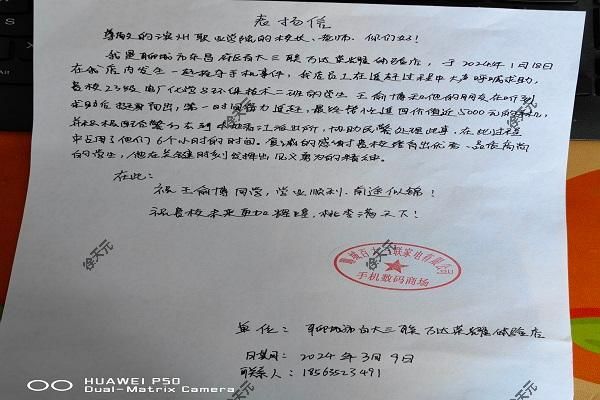 表扬信
尊敬的滨州职业学院的校长、老师，你们好！
我是聊城市东昌府区百大三联万达荣耀体验店，于2024年1月18日
在我店内发生一起抢夺手机事件，我店员工在追赶过程中大声呼喊求助，
贵校23级电厂化学与环保技术二班的学生王俞博和他的朋友在听到
求助后挺身而出，第一时间奋力追赶，最终将小追回价值近5000元的手机，
并积极配合警方去到派出所，协助民警处理此事，在此过程
中占用了他们6个小时的时间。真诚的感谢贵校培育出优秀、品质高尚
的学生，他在关键时刻发挥出见义勇为的精神。
在此：
祝王俞博同学，学业顺利、前途似锦！
祝贵校未来更加辉煌，桃李满天下！
聊城百大三联家电有限公司
手机数码商场
单位：聊城市百大三联万达荣耀体验店
日期：2024年3月9日
联系人：18563523491
徐天元
徐天元
徐天元
徐天元
徐天元
徐天元
HUAWEI P50
Dual-Matrix Camera